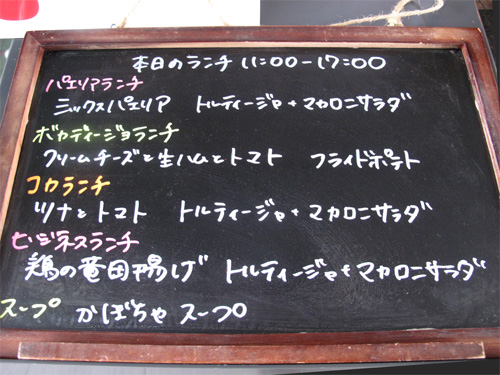 本日のランチ 11:00-17:00
パエリアランチ
ミックスパエリア トルティージャ+マカロニサラダ
ボカディージョランチ
クリームチーズと生ハムとトマト フライドポテト
コカランチ
ツナとトマト トルティージャ+マカロニサラダ
ビジネスランチ
鶏の竜田揚げ トルティージャ+マカロニサラダ
スープ かぼちゃスープ